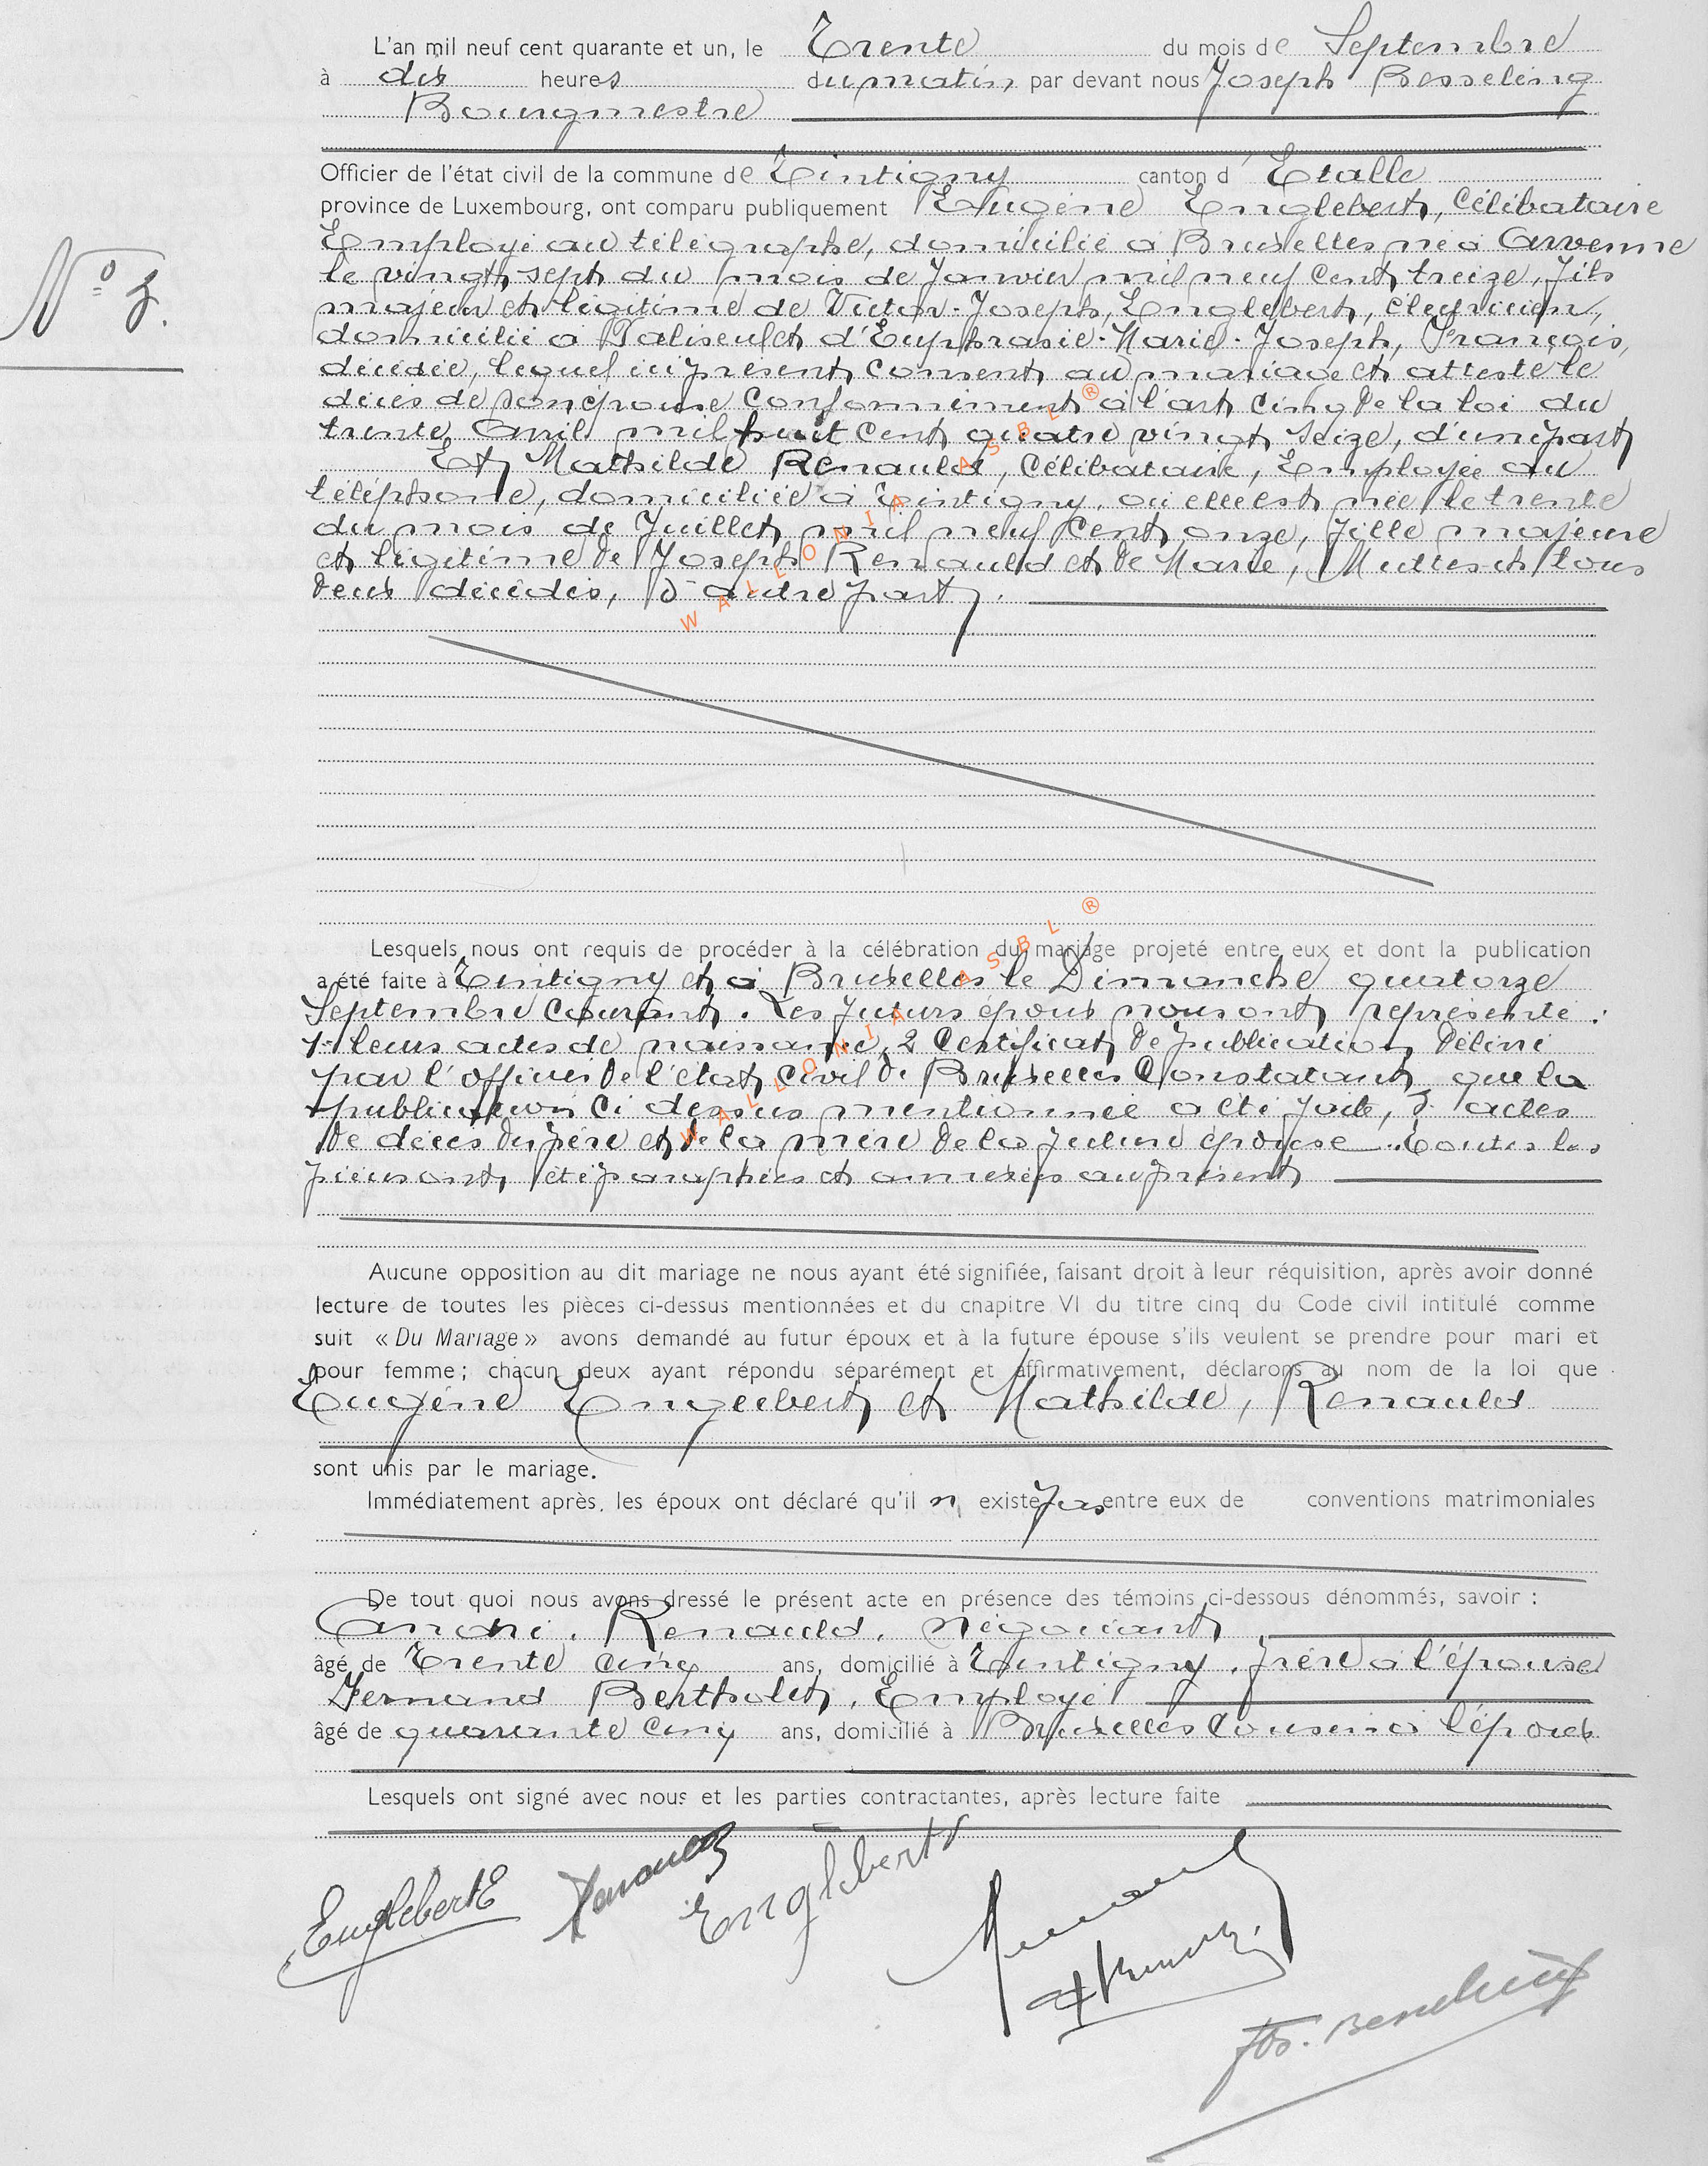 L'an mil neuf cent quarante et un, le Trente du mois de Septembre
à dix heures du matin, par devant nous Joseph Besseling
Bourgmestre
Officier de l'état civil de la commune de Tintigny canton d' Etalle
province de Luxembourg, ont comparu publiquement Eugène Englebert, Célibataire
Employé au télégraphe, domicilié à Bruxelles né à Arvenne
N°
le vingt sept du mois de Janvier mil neuf cent treize, fils
majeur et légitime de Victor-Joseph, Englebert, électricien,
domicilié à Paliseul et d'Euphrasie-Marie-Joseph, François,
décédée, lequel ici présent consent au mariage et atteste le
décès de son épouse conformément à l'art cinq de la loi du
trente Avril mil huit cent quatre vingt seize, d'une part
Et Mathilde Renauld, Célibataire, Employée au
téléphone, domiciliée à Tintigny où elle est née le trente
du mois de Juillet mil neuf cent onze, fille majeure
et légitime de Joseph Renauld et de Marie, tous
deux décédés, d'autre part.
WALLONIA ASBL ®
Lesquels nous ont requis de procéder à la célébration du mariage projeté entre eux et dont la publication
a été faite à Tintigny et à Bruxelles le Dimanche quatorze
Septembre Courant. Les futurs époux nous ont représenté :
1° leurs actes de naissance, 2 Certificat de publication délivré
par l'officier de l'état civil de Bruxelles Constatant que la
publication ci dessus mentionnée a été faite, 3. actes
de décès du père et de la mère de la future épouse. Toutes les
pièces ont été paraphées et annexées au présent
WALLONIA ASBL ®
Aucune opposition au dit mariage ne nous ayant été signifiée, faisant droit à leur réquisition, après avoir donné
lecture de toutes les pièces ci-dessus mentionnées et du chapitre VI du titre cinq du Code civil intitulé comme
suit « Du Mariage » avons demandé au futur époux et à la future épouse s'ils veulent se prendre pour mari et
pour femme ; chacun deux ayant répondu séparément et affirmativement, déclarons au nom de la loi que
Eugène Englebert et Mathilde, Renauld
sont unis par le mariage.
Immédiatement après, les époux ont déclaré qu'il n' existe pas entre eux de conventions matrimoniales
De tout quoi nous avons dressé le présent acte en présence des témoins ci-dessous dénommés, savoir :
André. Renauld. Négociant
âgé de Trente cinq ans, domicilié à Tintigny. frère à l'épouse
Fernand Bertholet. Employé
âgé de quarante cinq ans, domicilié à Bruxelles Cousin à l'époux
Lesquels ont signé avec nous et les parties contractantes, après lecture faite
Englebert E Renauld Englebert
Jos. Besseling